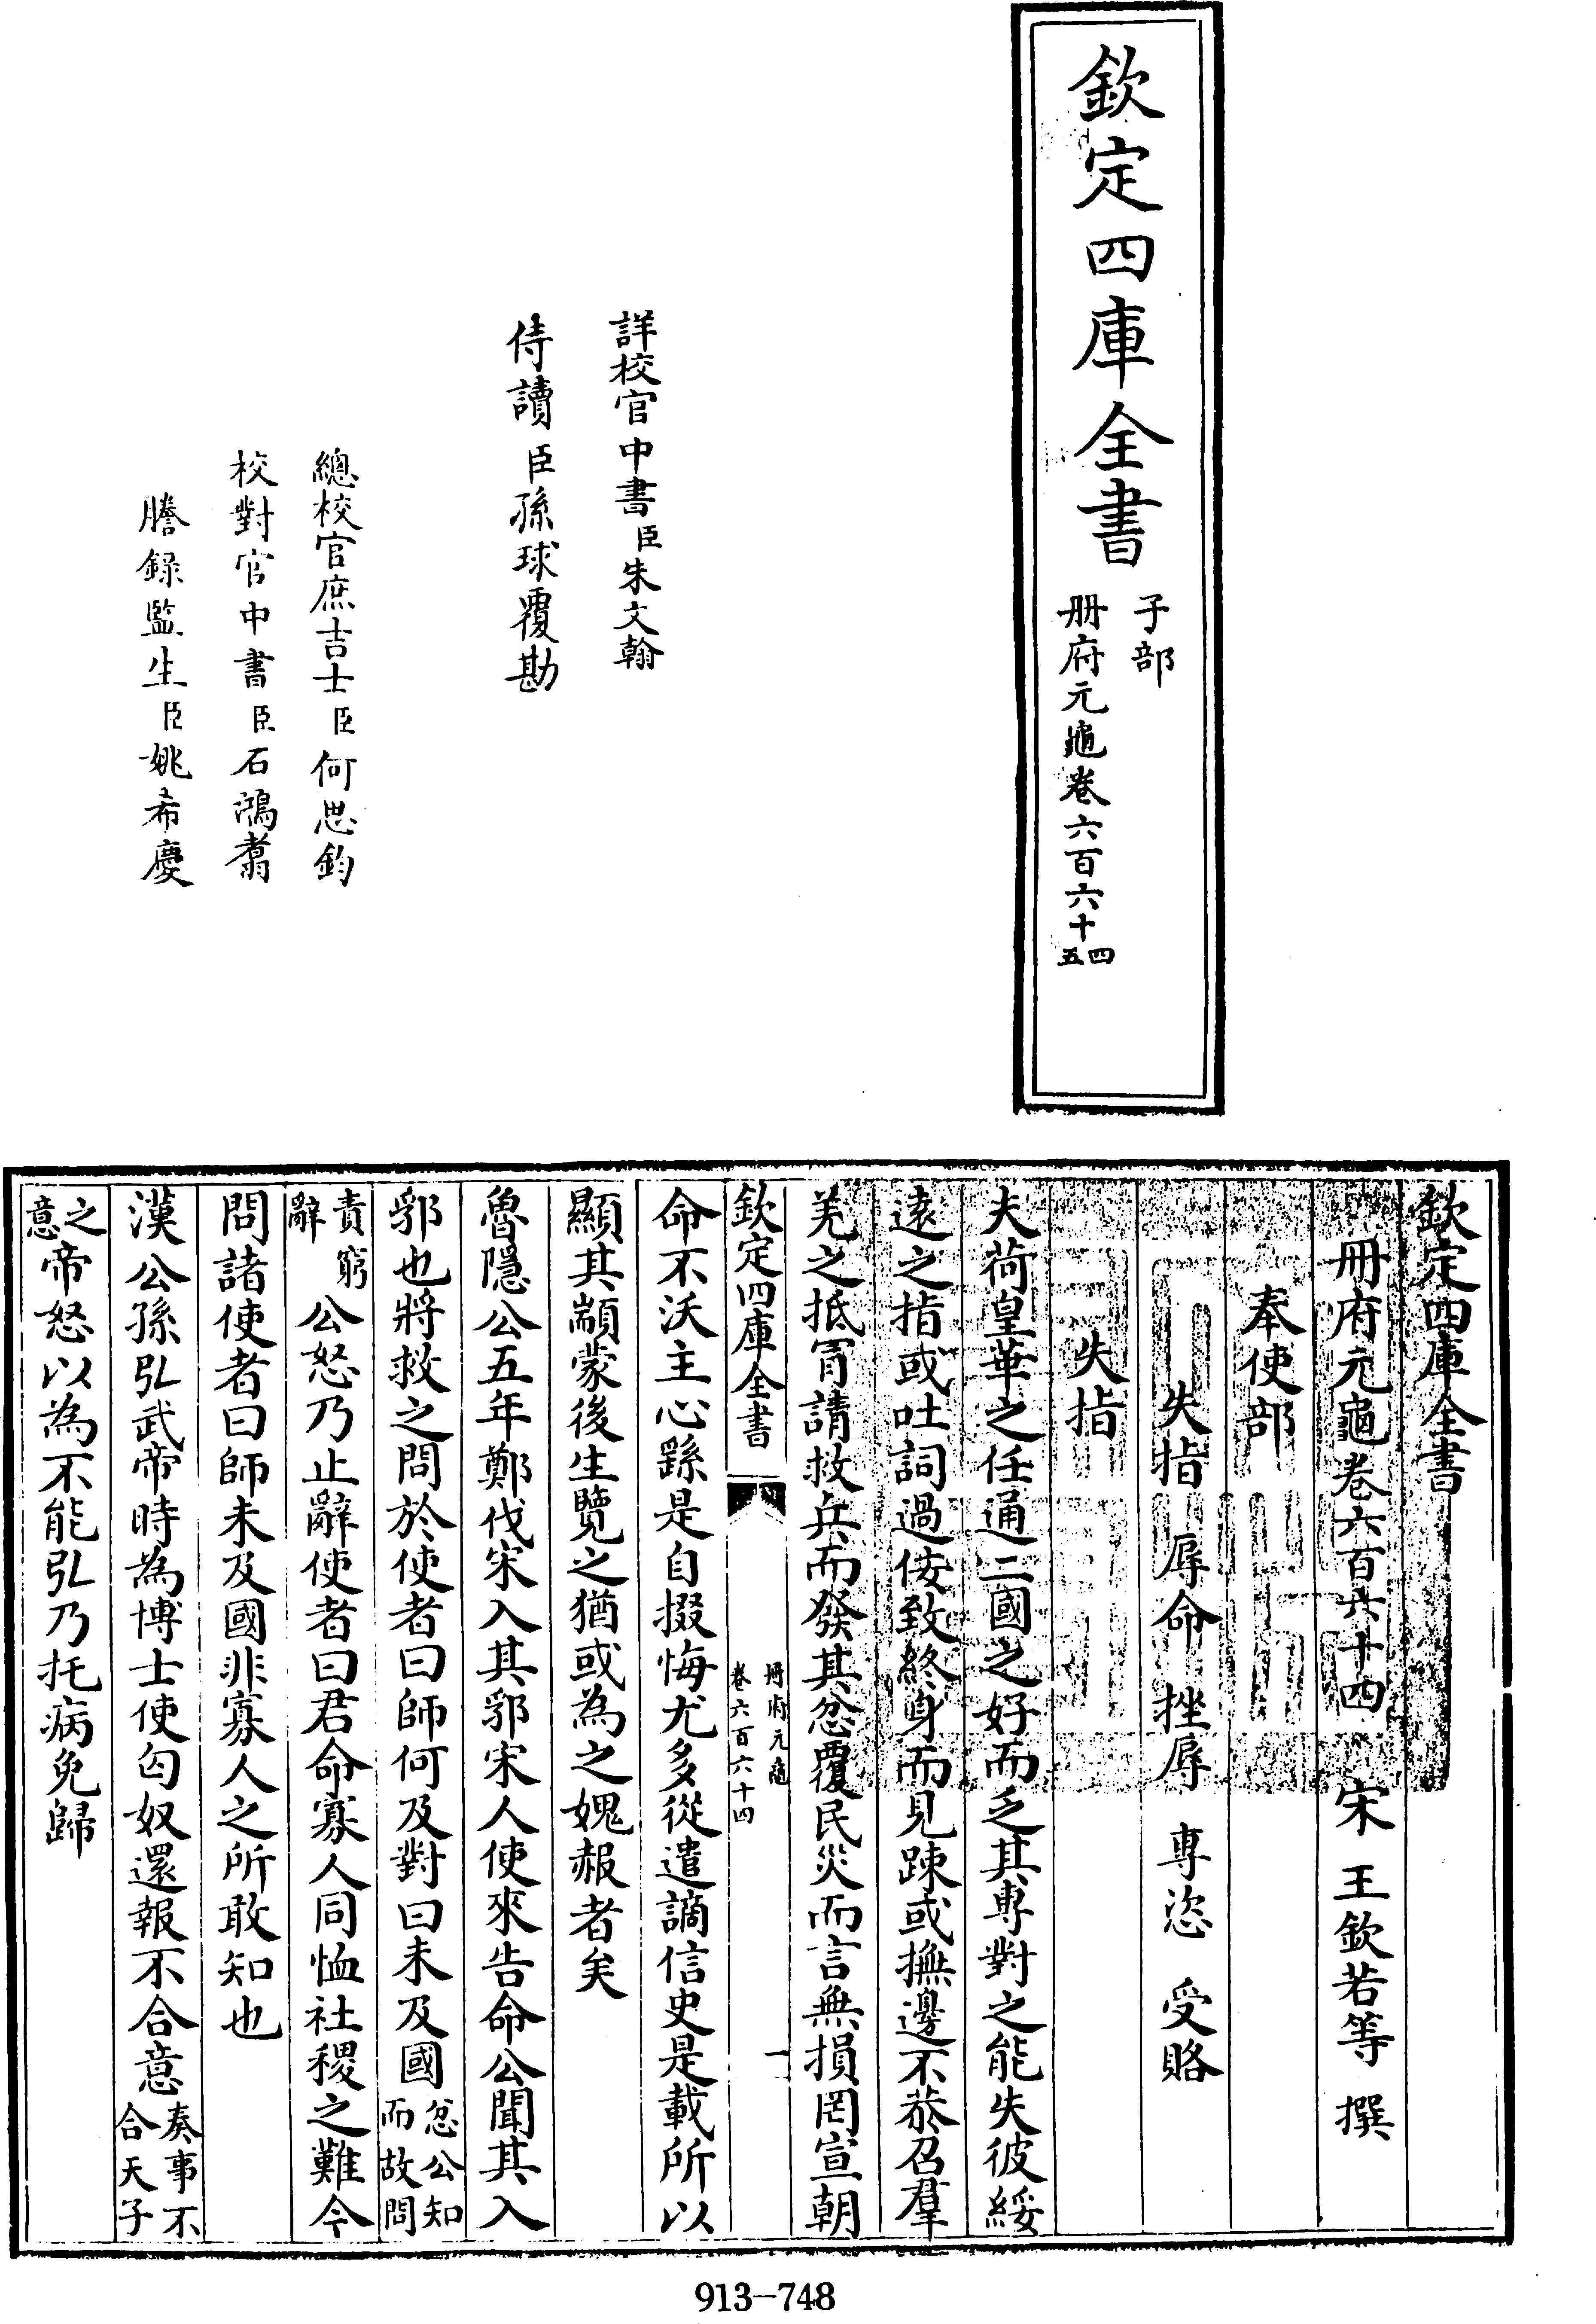 欽定四庫全書
子部
册府元龜卷六百六十四五
詳校官中書臣朱文翰
侍讀臣孫球覆勘
總校官庶吉士臣何思鈞
校對官中書臣石鴻翥
謄録監生臣姚希慶
欽定四庫全書
册府元龜卷六百六十四 宋 王欽若等 撰
奉使部
失指 辱命 挫辱 專恣 受賂
失指
夫荷皇華之任通二國之好而乏其專對之能失彼綏
逺之指或吐詞過佞致終身而見踈或撫邊不恭召羣
羌之抵冐請救兵而發其忿覆民災而言無損罔宣朝
欽定四庫全書
册府元龜
卷六百六十四
一
命不沃主心繇是自掇悔尤多從遣謫信史是載所以
顯其顓蒙後生覽之猶或為之媿赧者矣
魯隱公五年鄭伐宋入其郛宋人使來告命公聞其入
郛也將救之問於使者曰師何及對曰未及國忿公知而故問
責窮辭公怒乃止辭使者曰君命寡人同恤社稷之難今
問諸使者曰師未及國非寡人之所敢知也
漢公孫弘武帝時為博士使匈奴還報不合意奏事不合天子
之意帝怒以為不能弘乃托病免歸
913-748